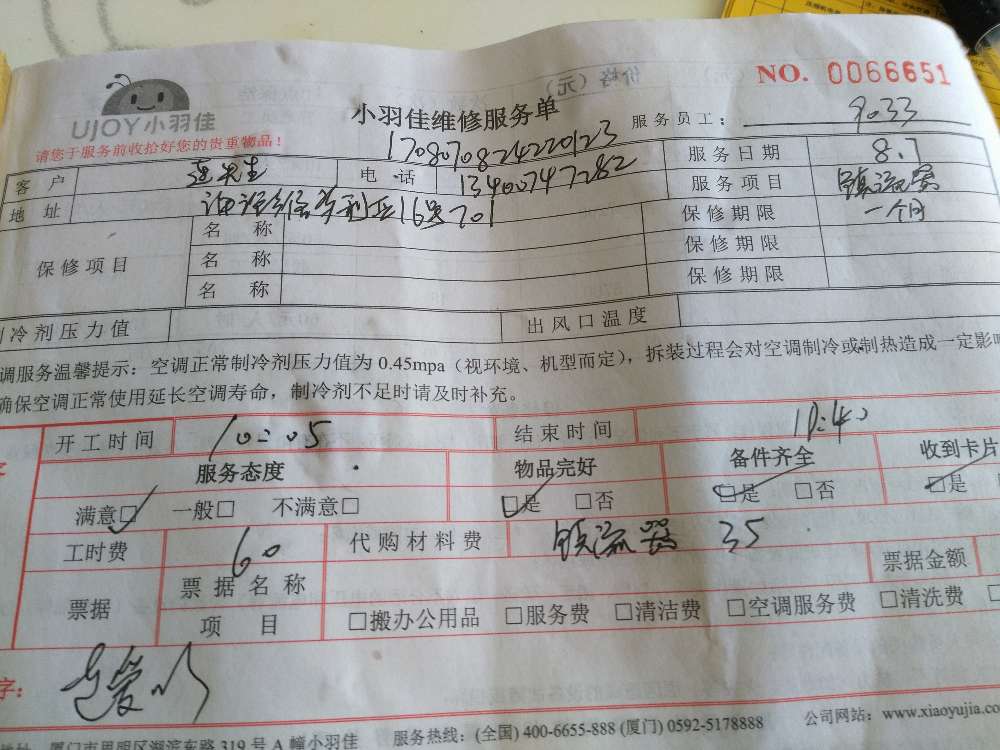 NO. 0066651
UJOY小羽佳
小羽佳维修服务单
服务员工: 9033
请您于服务前收拾好您的贵重物品!
1708070824220123
客户 连先生 电话 13400747282 服务日期 8.7
地址 16号701 服务项目 镇流器
保修项目 名称 保修期限 一个月
名称 保修期限
名称 保修期限
制冷剂压力值 出风口温度
调服务温馨提示:空调正常制冷剂压力值为 0.45mpa(视环境、机型而定),拆装过程会对空调制冷或制热造成一定影响
确保空调正常使用延长空调寿命,制冷剂不足时请及时补充。
开工时间 10:05 结束时间 10:40
服务态度 物品完好 备件齐全 收到卡片
满意□ 一般□ 不满意□ □是 □否 □是 □否 □是
工时费 60 代购材料费 镇流器 35
票据 票据名称 票据金额
项目 □搬办公用品 □服务费 □清洁费 □空调服务费 □清洗费
字:
厦门市思明区湖滨东路 319 号 A 幢小羽佳 服务热线:(全国) 400-6655-888 (厦门) 0592-5178888 公司网站:www.xiaoyujia.com